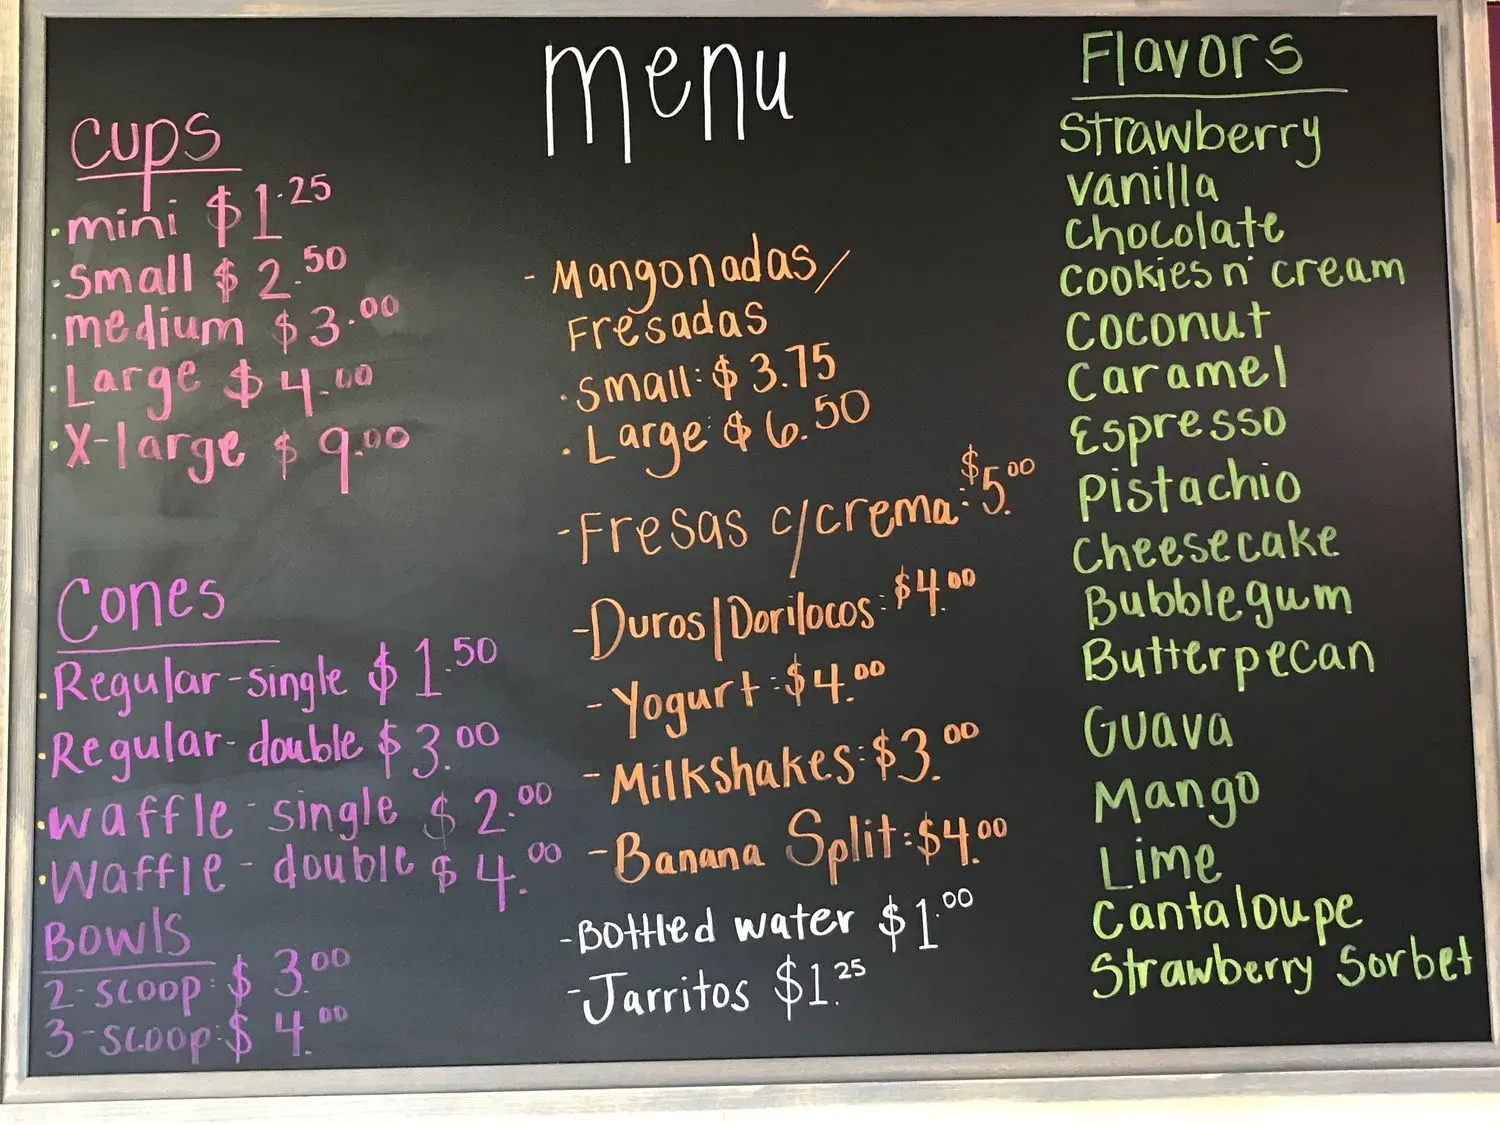 menu
Cups
mini $1.25
Small $2.50
medium $3.00
Large $4.00
X-large $9.00
Cones
Regular-single $1.50
Regular-double $3.00
Waffle-single $2.00
Waffle-double $4.00
Bowls
2-scoop: $3.00
3-scoop: $4.00
- Mangonadas/
Fresadas
Small: $3.75
Large: $6.50
- Fresas c/crema: $5.00
- Duros/Dorilocos: $4.00
- Yogurt: $4.00
- Milkshakes: $3.00
- Banana Split: $4.00
- Bottled water $1.00
- Jarritos $1.25
Flavors
Strawberry
Vanilla
Chocolate
Cookies n' cream
Coconut
Caramel
Espresso
Pistachio
Cheesecake
Bubblegum
Butterpecan
Guava
Mango
Lime
Cantaloupe
Strawberry Sorbet